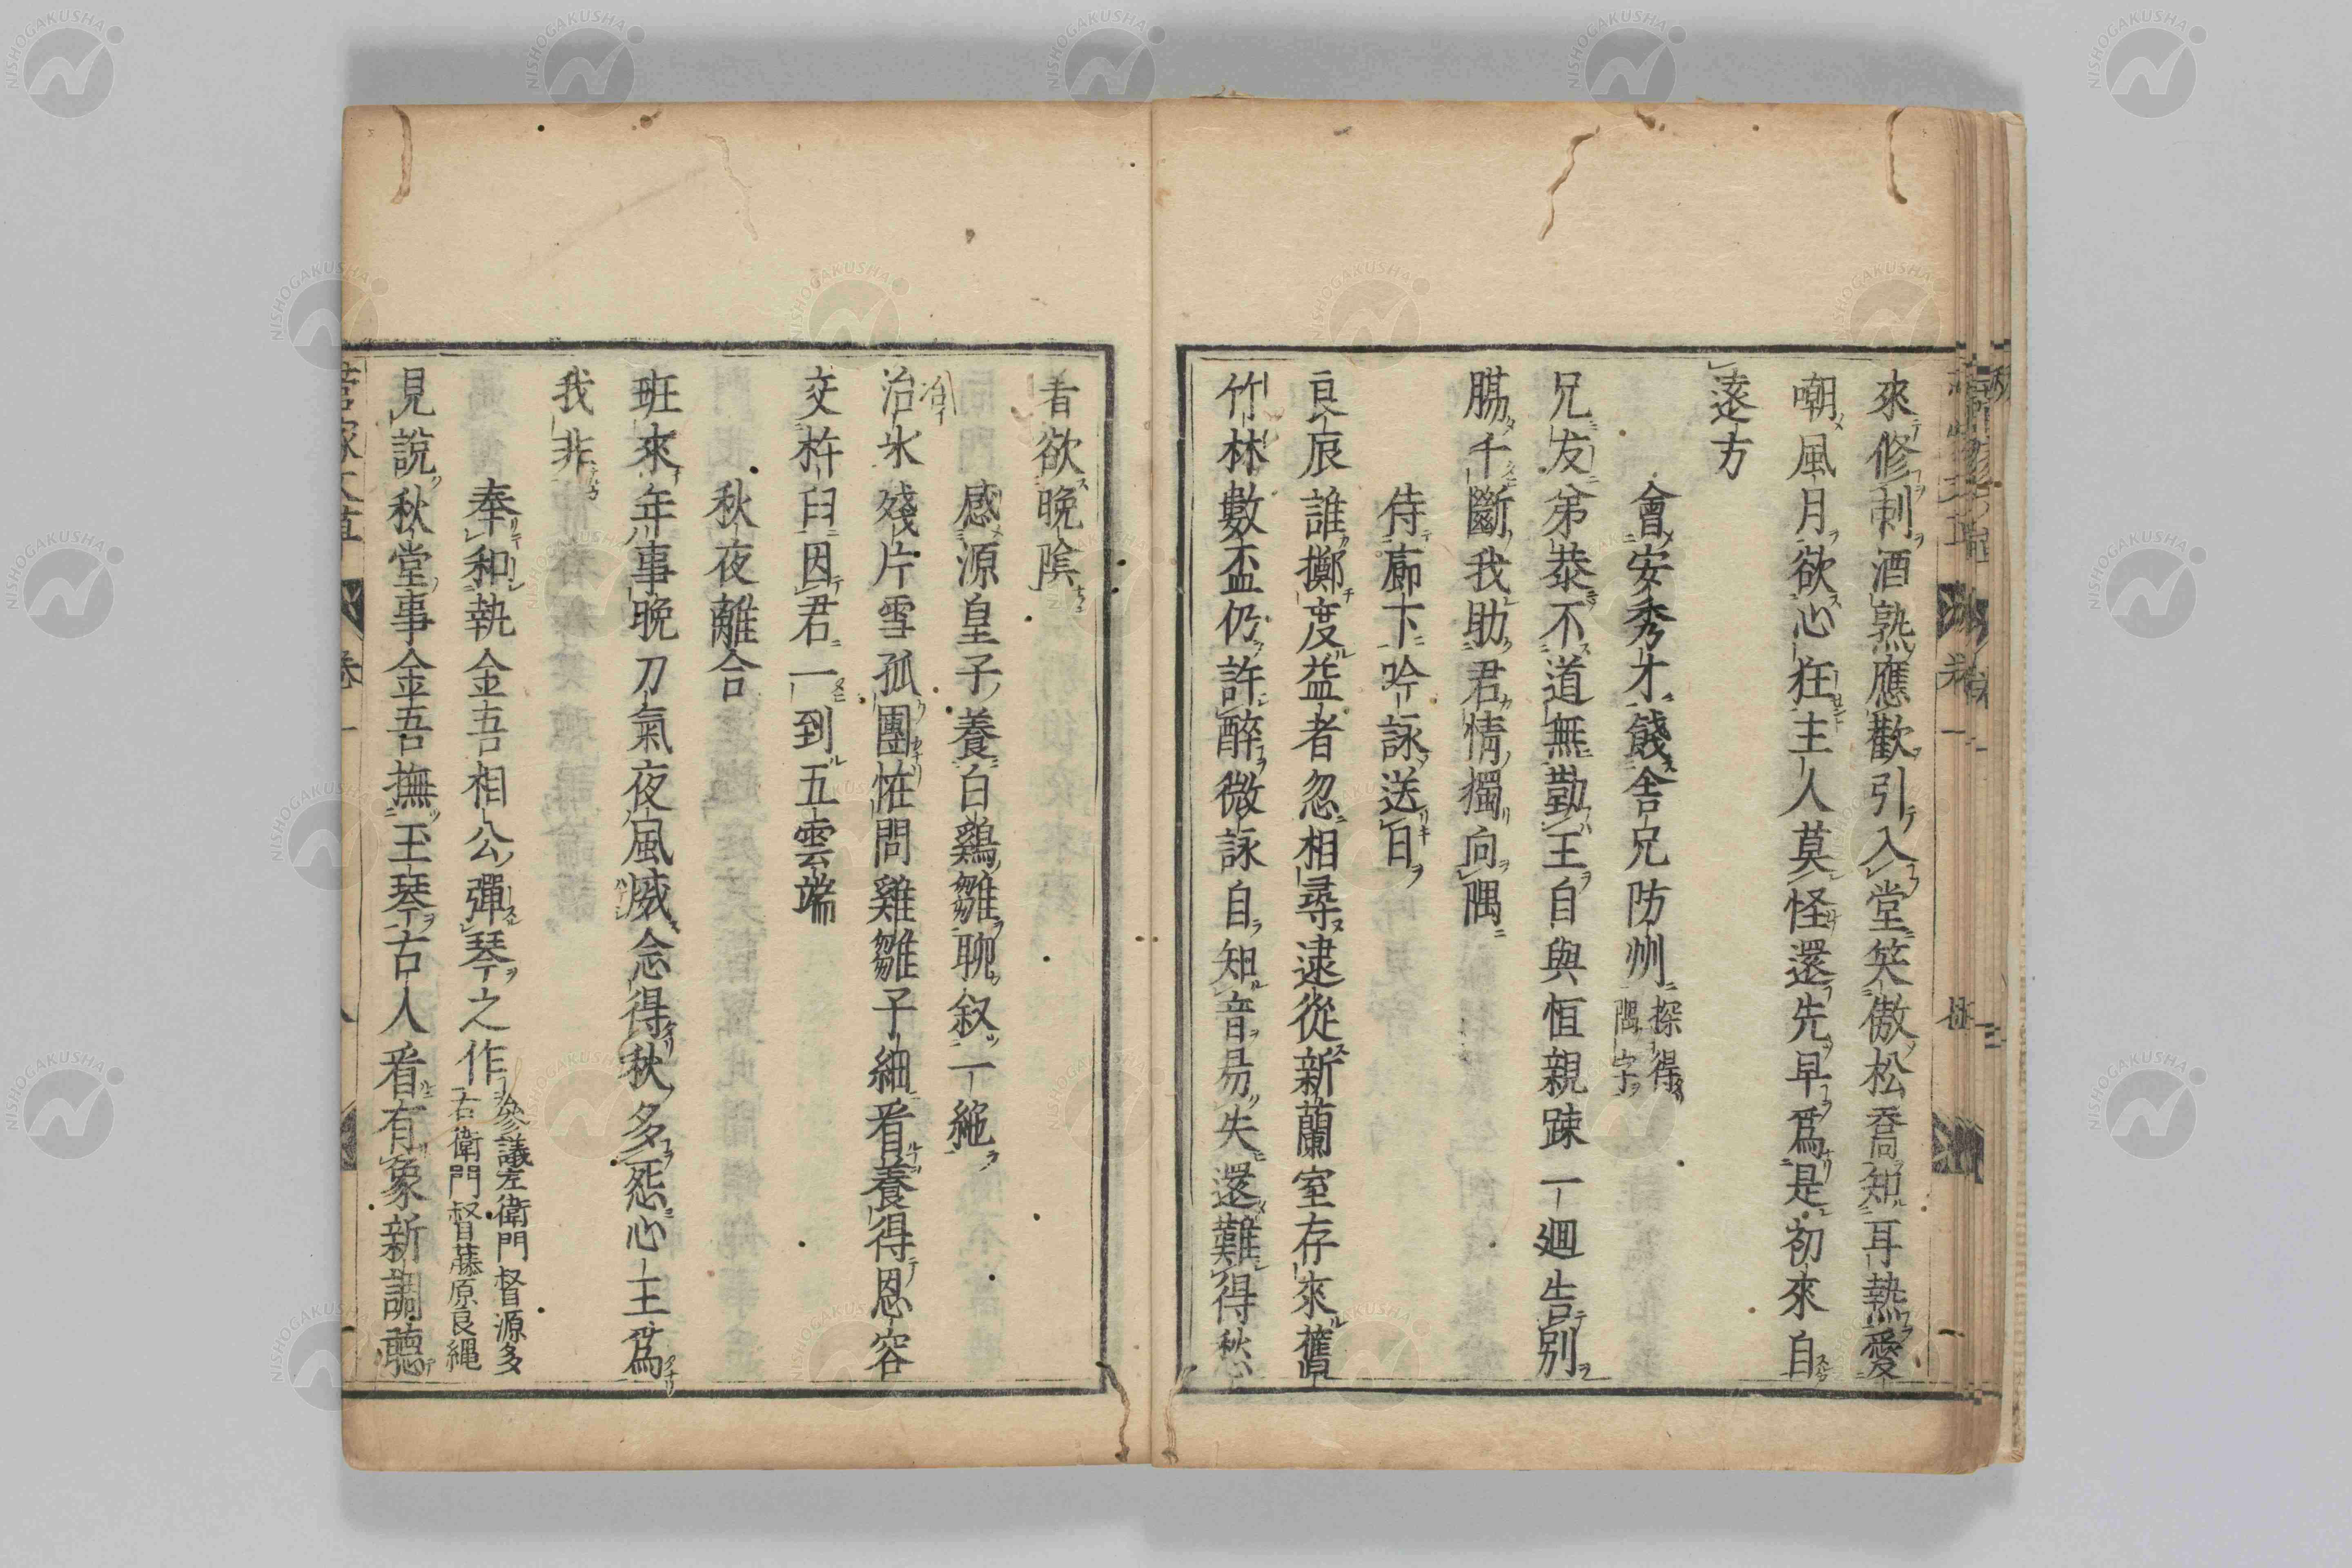 來修刺酒熟應歡引入堂笑傲松喬知耳熱愛
嘲風月欲心狂主人莫怪還先早爲是初來自
遠方
會安秀才餞舍兄防州
探得
隅字
兄友弟恭不道無勤王自與恒親踈一廻告別
膓千斷我助君情獨向隅
侍廊下吟詠送日
良辰誰擲度益者忽相尋逮從新蘭室存來舊
竹林數盃仍許醉微詠自知音易失還難得秋心
看欲晚陰
感源皇子養白鷄雛聊叙一絶
治氷殘片雪孤團恠問雞雛子細看養得恩容
冶
交杵臼因君一到五雲端
秋夜離合
班來年事晚刀氣夜風威念得秋多怨心王爲
我非
奉和執金吾相公彈琴之作
參議左衛門督源多
右衛門督藤原良縄
見說秋堂事金吾撫玉琴古人看有象新調聽
菅家文草
卷一
NISHOGAKUSHA